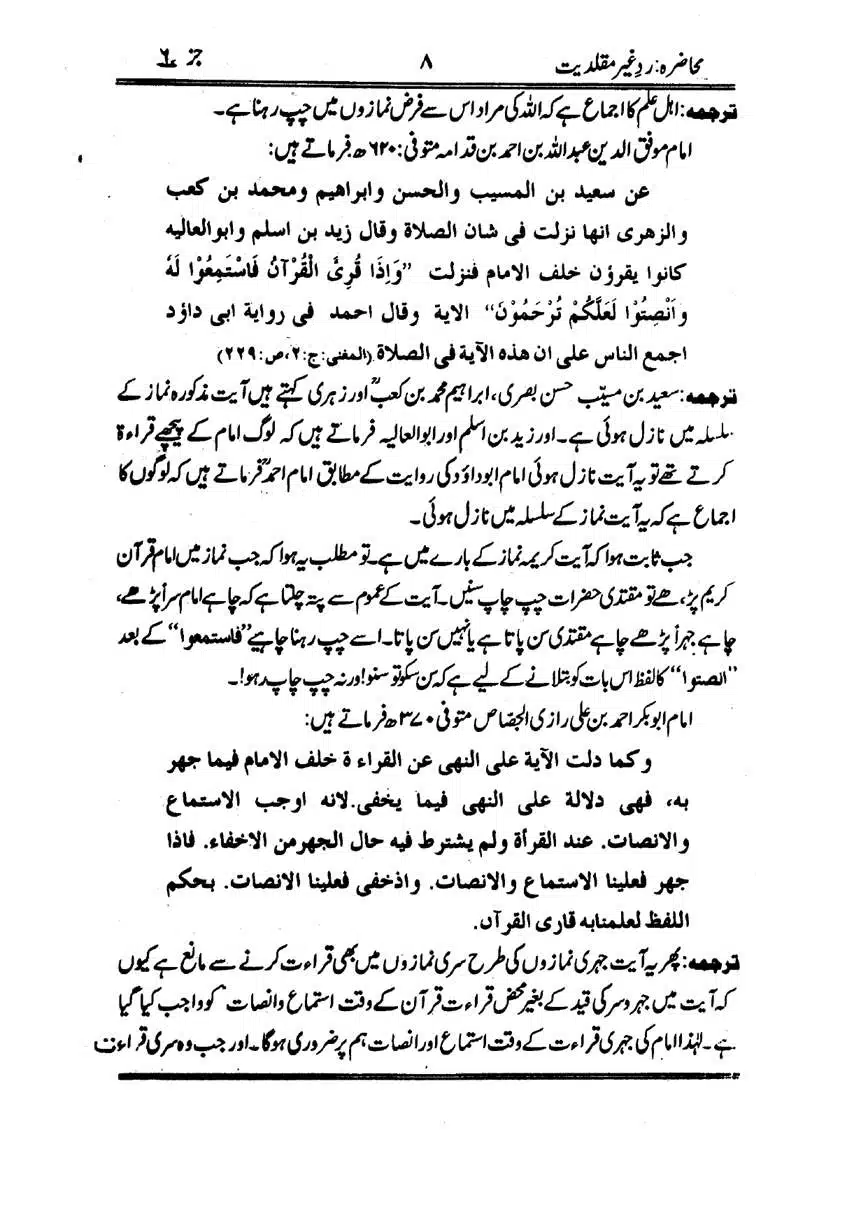 محاضرہ: ردِ غیر مقلدیت ۸ جز ۶
ترجمہ: اہل علم کا اجماع ہے کہ اللہ کی مراد اس سے فرض نمازوں میں چپ رہنا ہے۔
امام موفق الدین عبداللہ بن احمد بن قدامہ متوفی: ۶۲۰ھ فرماتے ہیں:
عن سعید بن المسیب والحسن وابراھیم ومحمد بن کعب
والزھری انھا نزلت فی شان الصلاۃ وقال زید بن اسلم وابوالعالیہ
کانوا یقرؤن خلف الامام فنزلت ”وَإِذَا قُرِئَ الْقُرْآنُ فَاسْتَمِعُوْا لَهٗ
وَاَنْصِتُوْا لَعَلَّکُمْ تُرْحَمُوْنَ“ الایۃ وقال احمد فی روایۃ ابی داؤد
اجمع الناس علی ان ھذہ الآیۃ فی الصلاۃ (المغنی: ج:۲، ص:۲۲۹)
ترجمہ: سعید بن مسیّب حسن بصری، ابراہیم محمد بن کعبؒ اور زہری کہتے ہیں آیت مذکورہ نماز کے
سلسلہ میں نازل ہوئی ہے۔ اور زید بن اسلم اور ابوالعالیہ فرماتے ہیں کہ لوگ امام کے پیچھے قراءۃ
کرتے تھے تو یہ آیت نازل ہوئی امام ابوداؤد کی روایت کے مطابق امام احمدؒ فرماتے ہیں کہ لوگوں کا
اجماع ہے کہ یہ آیت نماز کے سلسلہ میں نازل ہوئی۔
جب ثابت ہوا کہ آیت کریمہ نماز کے بارے میں ہے۔ تو مطلب یہ ہوا کہ جب نماز میں امام قرآن
کریم پڑھے تو مقتدی حضرات چپ چاپ سنیں۔ آیت کے عموم سے پتہ چلتا ہے کہ چاہے امام سراً پڑھے،
چاہے جہراً پڑھے چاہے مقتدی سن پاتا ہے یا نہیں سن پاتا۔ اسے چپ رہنا چاہیے ”فاستمعوا“ کے بعد
”انصتوا“ کا لفظ اس بات کو بتلانے کے لیے ہے کہ سن سکو تو سنو! ورنہ چپ چاپ رہو!۔
امام ابوبکر احمد بن علی رازی الجصاص متوفی ۳۷۰ھ فرماتے ہیں:
وکما دلت الآیة علی النھی عن القراءۃ خلف الامام فیما جھر
بہ، فھی دلالة علی النھی فیما یخفی. لانہ اوجب الاستماع
والانصات. عند القرأۃ ولم یشترط فیہ حال الجھر من الاخفاء. فاذا
جھر فعلینا الاستماع والانصات. واذخفی فعلینا الانصات. بحکم
اللفظ لعلمنابہ قاری القرآن.
ترجمہ: پھر یہ آیت جہری نمازوں کی طرح سری نمازوں میں بھی قراءت کرنے سے مانع ہے کیوں
کہ آیت میں جہر و سر کی قید کے بغیر محض قراءت قرآن کے وقت استماع و انصات کو واجب کیا گیا
ہے۔ لہٰذا امام کی جہری قراءت کے وقت استماع اور انصات ہم پر ضروری ہوگا۔ اور جب وہ سری قراءت